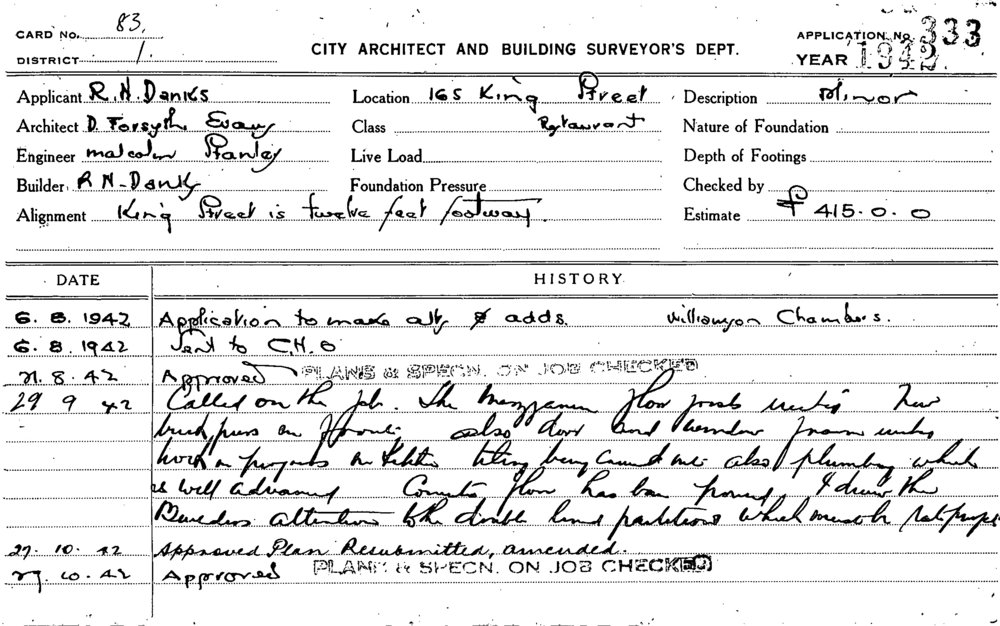 CARD No. 83.
DISTRICT 1.
CITY ARCHITECT AND BUILDING SURVEYOR'S DEPT.
APPLICATION No. 333
YEAR 1942.
Applicant R.N. Danks
Location 165 King Street
Description Minor
Architect D. Forsyth Evans
Class Restaurant
Nature of Foundation
Engineer Malcolm Stanley
Live Load
Depth of Footings
Builder R N. Danks
Foundation Pressure
Checked by
Alignment King Street is twelve feet footway.
Estimate £ 415. 0. 0
DATE HISTORY
6. 8. 1942 Application to make alts & adds. Williamson Chambers.
6. 8. 1942 Sent to C.H.O
21. 8. 42 Approved PLANS & SPECN. ON JOB CHECKED
29 9 42 Called on the job. The Mezzanine floor joists New
brick piers also door and window frames
work in progress on tiling being also plumbing which
is well advanced floor has been poured. I drew the
Builders attention to the double lined partitions which must be
27. 10. 42 Approved Plan Resubmitted, amended.
29. 10. 42 Approved PLANS & SPECN. ON JOB CHECKED